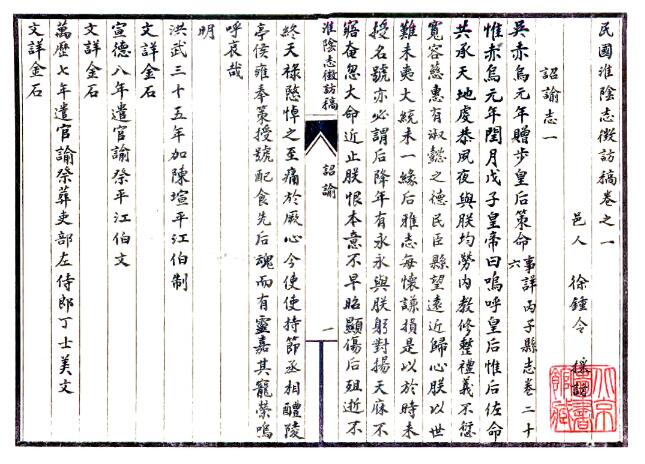 民國淮陰志徵訪稿卷之一
邑人 徐鍾令 採訪
詔諭志一
吳赤烏元年贈步皇后策命 事詳丙子縣志卷二十六
惟赤烏元年閏月戊子皇帝曰嗚呼皇后惟后佐命
共承天地虔恭夙夜與朕均勞內教修整禮義不愆
寬容慈惠有淑懿之德民臣縣望遠近歸心朕以世
難未夷大統未一緣后雅志每懷謙損是以於時未
授名號亦必謂后降年有永永與朕躬對揚天庥不
寤奄忽大命近止朕恨本意不早昭顯傷后殂逝不
淮陰志徵訪稿 詔諭 一
終天祿愍悼之至痛於厥心今使使持節丞相醴陵
亭侯雍奉策授號配食先后魂而有靈嘉其寵榮嗚
呼哀哉
明
洪武三十五年加陳瑄平江伯制
文詳金石
宣德八年遣官諭祭平江伯文
文詳金石
萬歷七年遣官諭祭葬吏部左侍郎丁士美文
文詳金石